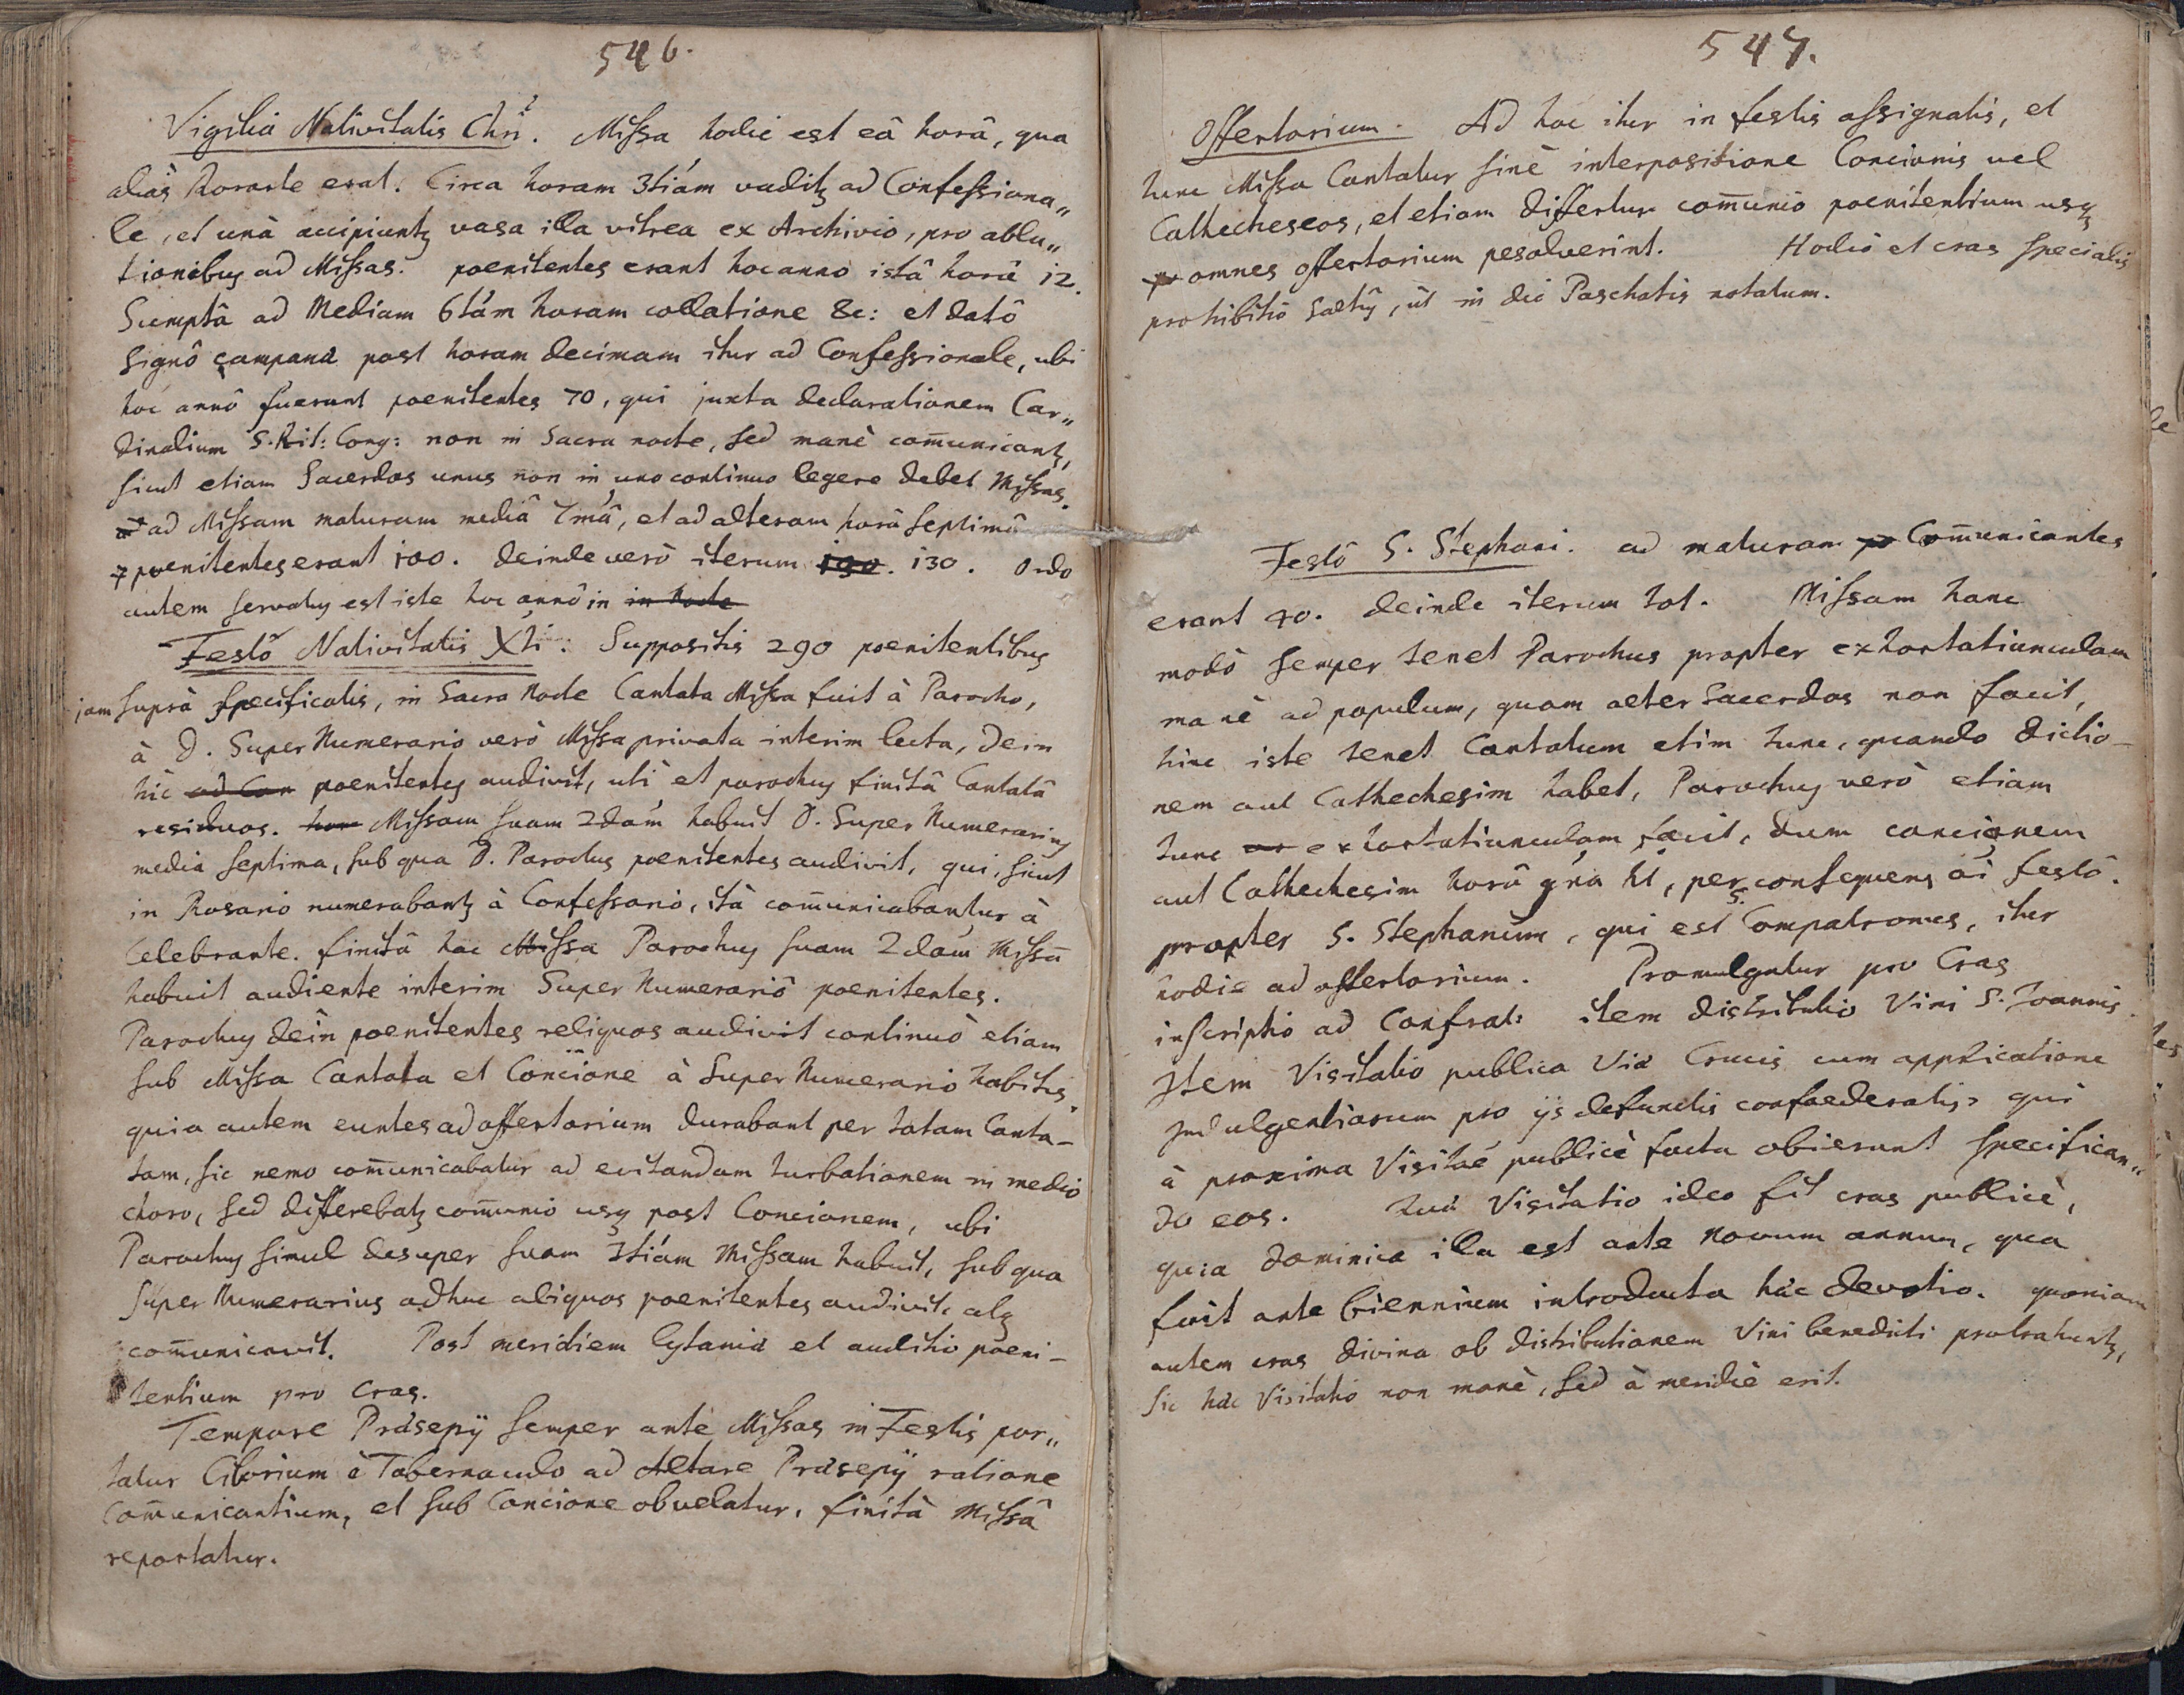 546.
Vigilia Nativitatis Chri. Missa hodie est eâ horâ, qua
aliàs Rorate erat. Circa horam 3tiám vaditꝫ ad Confessiona„
le, et unà accipiuntꝫ vasa illa vitrea ex Archivio, pro ablu„
tionibuꝫ ad Missas. poenitentes erant hoc anno istâ horâ 12.
Sumptâ ad Mediam 6tám horam collatione &c: et datô
Signô campanæ post horam decimam itur ad Confessionale, ubi
hoc annô fuerunt poenitentes 70, qui juxta declarationem Car„
dinalium S. Rit: Cong: non in Sacra nocte, sed manè com̅unicantꝫ,
sicut etiam Sacerdos unus non in uno continuo legere debet Missas.
ad Missam maturam mediâ 7mâ, et ad alteram horâ septimâ
poenitentes erant 100. deinde verò iterum 190. 130. Ordo
autem servatuꝫ est iste hoc annô in in Nocte
Festô Nativitatis Xti: Suppositis 290 poenitentibuꝫ
jam suprà specificatis, in Sacra Nocte Cantata Missa fuit à Parocho,
à D. Super Numerario verò Missa privata interim lecta, Dein
hic ad Con poenitentes audivit, uti et parochuꝫ finitâ Cantatâ
residuos. hor Missam suam 2dam habuit D. Super Numerariuꝫ
media septima, sub qua D. Parochus poenitentes audivit, qui, sicut
in Rosario numerabantꝫ à Confessario, ità com̅unicabantur à
Celebrante. finitâ hac Missa Parochuꝫ suam 2dam Missa̅
habuit audiente interim Super Numerariô poenitentes.
Parochuꝫ dein poenitentes reliquos audivit continuò etiam
sub Missa Cantata et Concione à Super Numerario habitis.
quia autem euntes ad offertorium durabant per totam Canta-
tam, sic nemo com̅unicabatur ad evitandam turbationem in medio
choro, sed differebatꝫ com̅unio usqꝫ post Concionem, ubi
Parochuꝫ simul desuper suam 3tiám Missam habuit, sub qua
Super Numerarius adhuc aliquos poenitentes audivit, atqꝫ
com̅unicavit. Post meridiem Lytaniæ et auditio poeni-
tentium pro cras.
Tempore Præsepij semper ante Missas in Festis por„
tatur Ciborium è Tabernaculo ad Altare Præsepij ratione
Com̅unicantium, et sub Concione obvelatur, finitâ Missâ
reportatur.
547.
Offertorium. Ad hoc itur in festis assignatis, et
tunc Missa Cantatur sinè interpositione Concionis vel
Cathecheseos, et etiam differtur com̅unio poenitentium usqꝫ
omnes offertorium persolverint. Hodie et cras specialis
prohibitio saltuꝫ, ùt in die Paschatis notatum.
Festô S. Stephani. ad maturam po Com̅unicantes
erant 40. deinde iterum tot. Missam hanc
modò semper tenet Parochus propter exhortatiunculam
manè ad populum, quam alter Sacerdos non facit,
hinc iste tenet Cantatum etim tunc, quando dictio-
nem aut Cathechesim habet, Parochuꝫ verò etiam
tunc exhortatiunculam facit, dum concionem
aut Cathechesim horâ 9na ht, per consequens oi festô.
propter S. Stephanum, qui est S. Compatronus, itur
hodie ad offertorium. Promulgatur pro Cras
inscriptio ad Confrat: item distributio Vini S. Joannis.
Item Visitatio publica Viæ Crucis cum applicatione
Indulgentiarum pro ijs defunctis confoederatis, qui
à proxima Visitae̅ publicè facta obierunt specifican„
do eos. hæc Visitatio ideo fit cras publicè,
quia Dominica illa est ante Novum annum, qua
fuit ante biennium introducta hæc devotio. quoniam
autem cras divina ob distributionem Vini benedicti protrahuntꝫ,
sic hæc Visitatio non manè, sed à meridie erit.